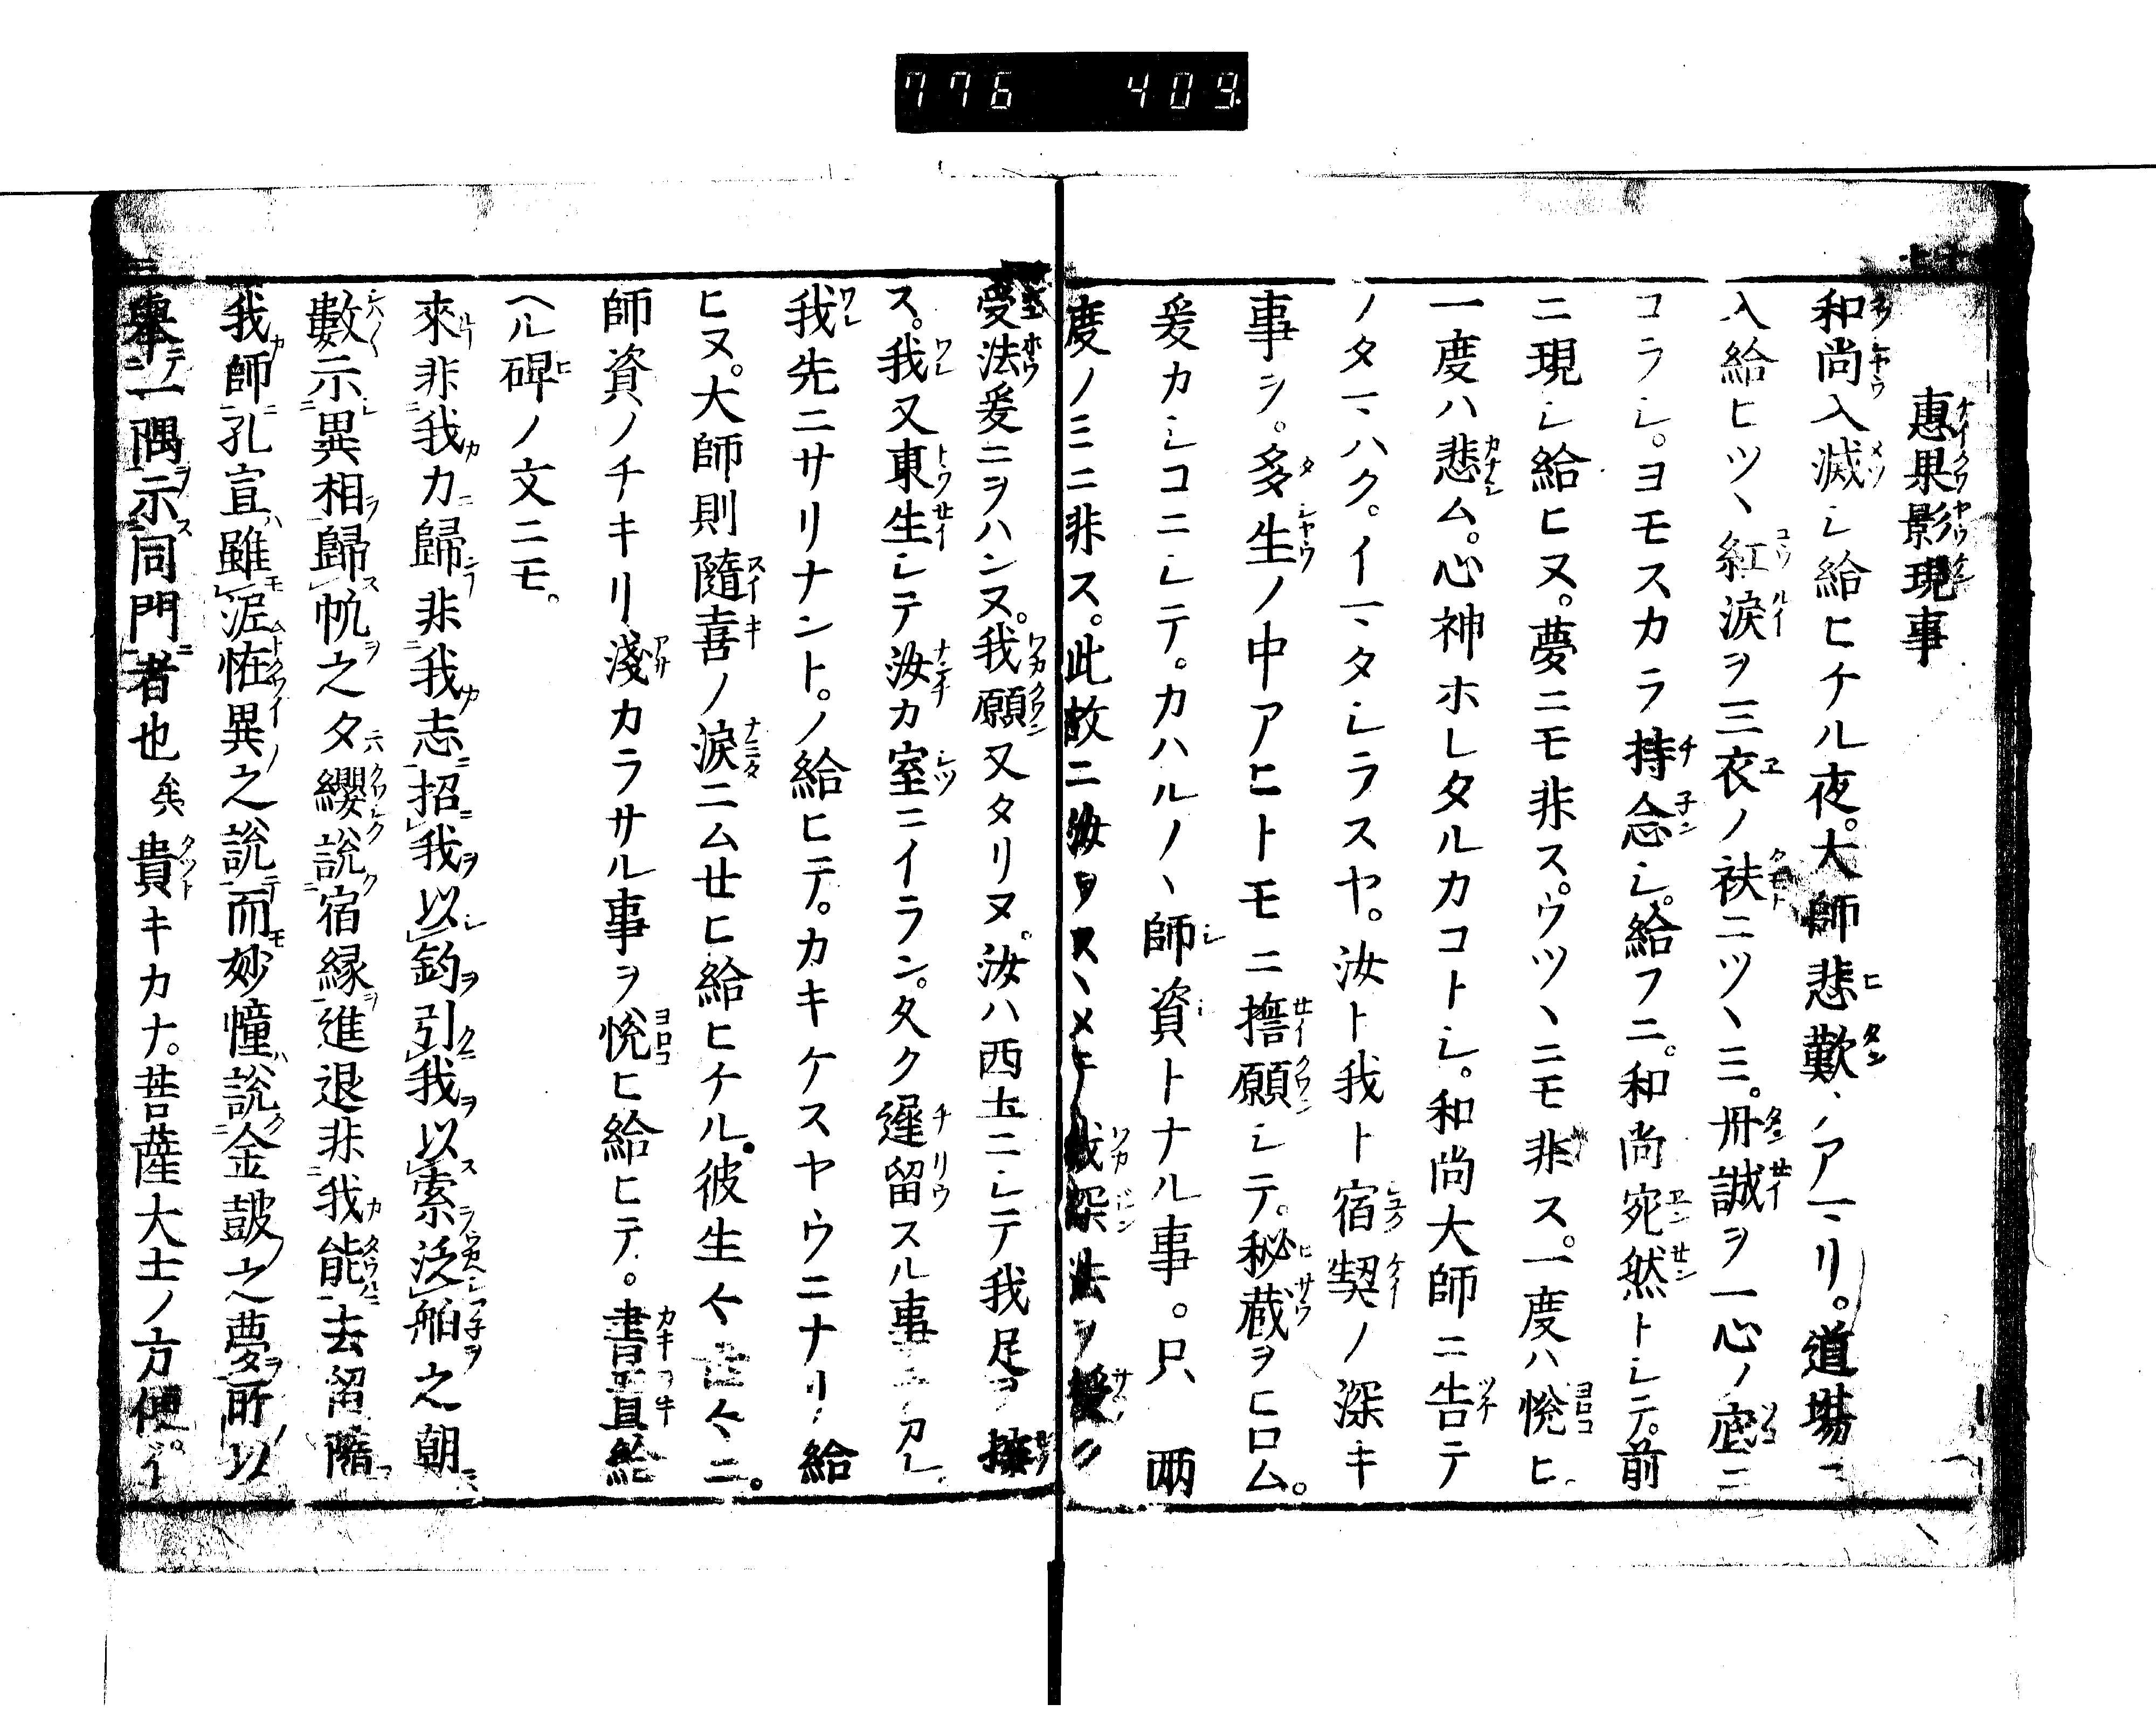 776 409
惠果影現事
和尚入滅シ給ヒケル夜。大師悲歎アマリ。道場ニ
入給ヒツヽ紅涙ヲ三衣ノ袂ニツヽミ。丹誠ヲ一心ノ底ニ
コラシ。ヨモスカラ持念シ。給フニ。和尚宛然トシテ。前
ニ現シ給ヒヌ。夢ニモ非ス。ウツヽニモ非ス。一度ハ悅ヒ
一度ハ悲ム。心神ホレタルカコトシ。和尚大師ニ告テ
ノタマハク。イマタシラスヤ。汝ト我ト宿契ノ深キ
事ヲ。多生ノ中アヒトモニ誓願シテ。秘蔵ヲヒロム。
爰カシコニシテ。カハルノヽ師資トナル事。只兩
度ノミニ非ス。此故ニ汝ヲスヽメテ我深法ヲ授ク
受法爰ニヲハンヌ。我願又タリヌ。汝ハ西土ニシテ我足ヲ接
ス。我又東生シテ汝カ室ニイラン。久ク遲留スル事ナカレ
我先ニサリナント。ノ給ヒテ。カキケスヤウニナリ給
ヒヌ。大師則隨喜ノ涙ニムセヒ給ヒケル。彼生々世々ニ。
師資ノチキリ淺カラサル事ヲ悅ヒ給ヒテ。書置給
ヘル碑ノ文ニモ。
來非我カ歸非我志招我以鈎引我以索泛舶之朝
數示異相歸帆之夕縷說宿緣進退非我能去留隨
我師孔宣雖泥恠異之說而妙幢說金鼓之夢所以
擧一隅示同門者也矣貴キカナ。菩薩大士ノ方便。イ